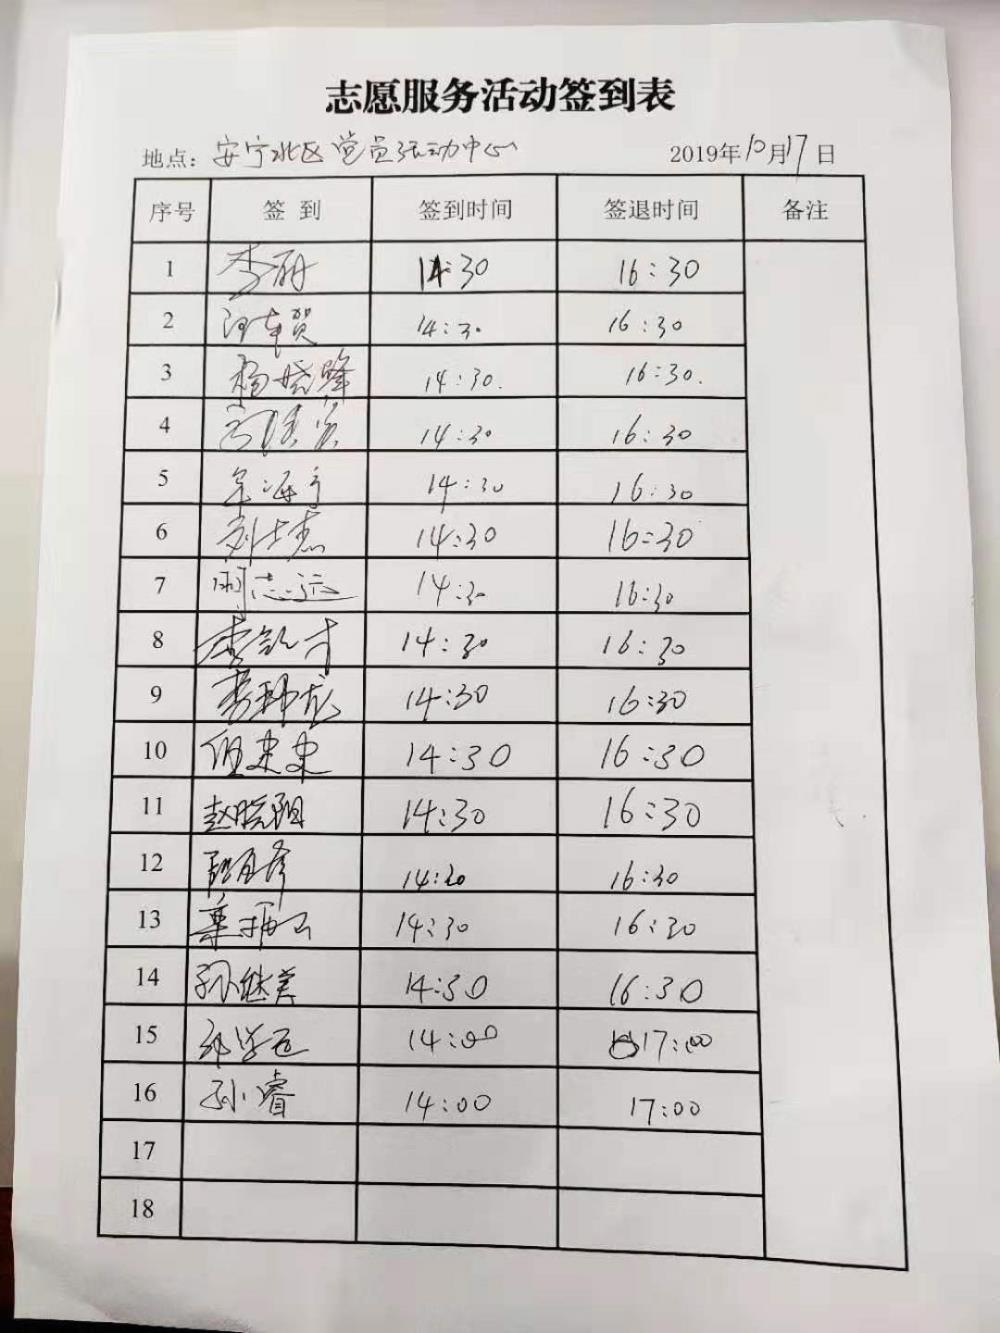 志愿服务活动签到表
地点：安宁北区党员活动中心 2019年10月17日
序号 签到 签到时间 签退时间 备注
1 李丽 14:30 16:30
2 14:30 16:30
3 杨晓峰 14:30. 16:30.
4 14:30 16:30
5 14:30 16:30
6 刘士杰 14:30 16:30
7 周志远 14:30 16:30
8 李 才 14:30 16:30
9 李 龙 14:30 16:30
10 14:30 16:30
11 赵晓阳 14:30 16:30
12 14:30 16:30
13 14:30 16:30
14 孙继 14:30 16:30
15 14:00 17:00
16 孙睿 14:00 17:00
17
18